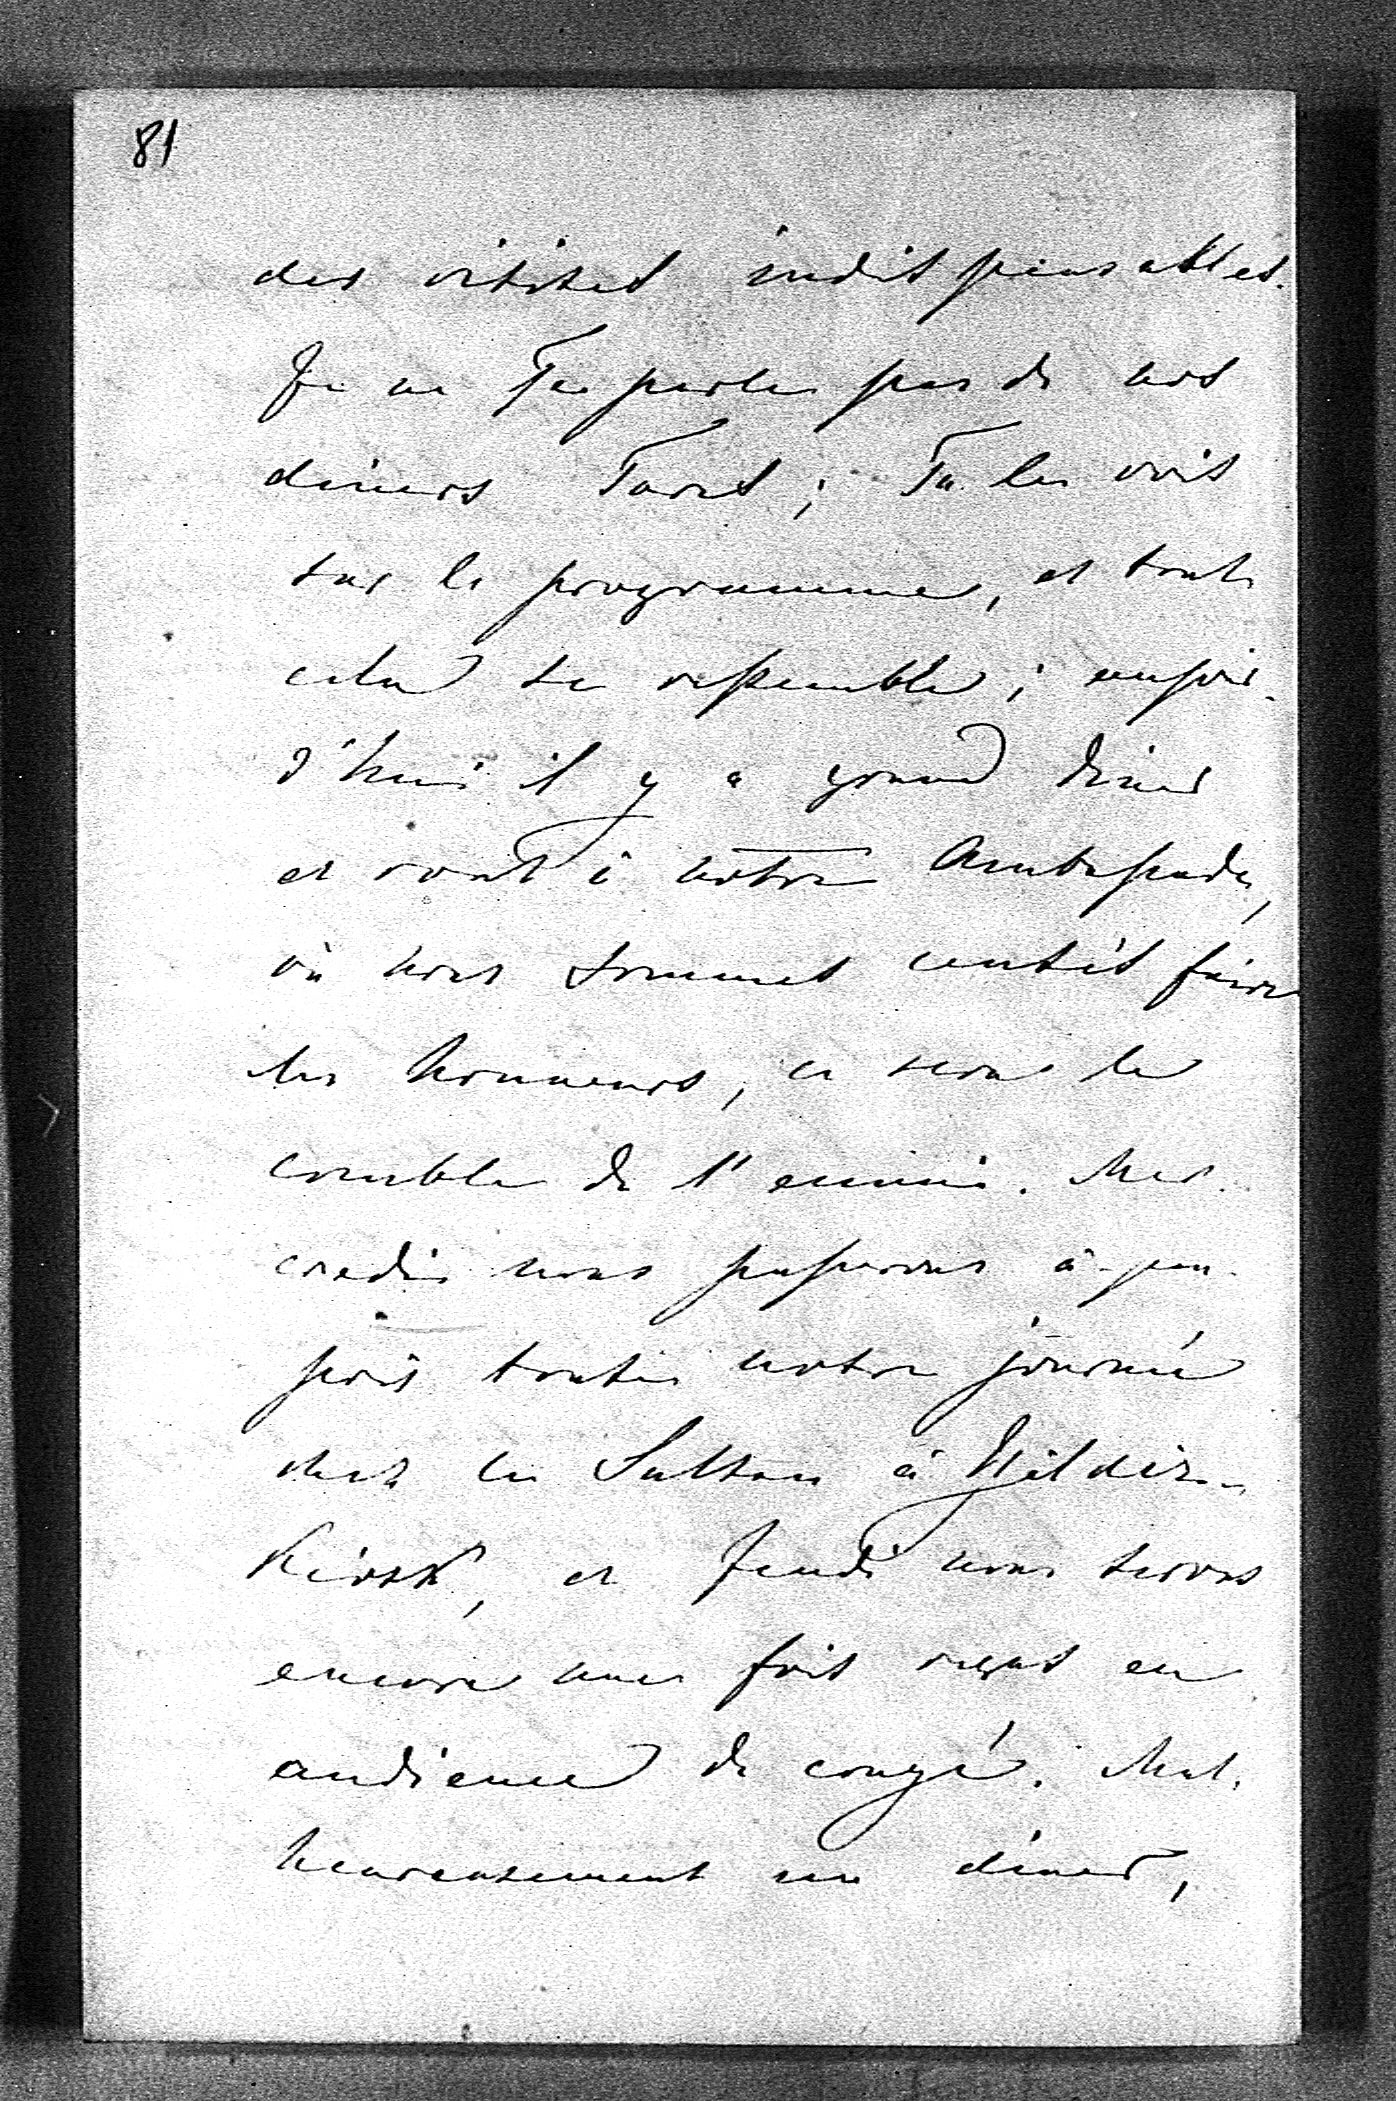 81
des visites indispensables.
Je ne Te parle pas de nos
diners Turcs; Tu les vois
sur le programme, et tout
cela se ressemble; aujour-
d'hui il y a grand diner
et rout à notre Ambassade,
où nous sommes censés faire
les honneurs, ce sera le
comble de l'ennui. Mer-
credi nous passerons à-peu-
près toute notre journée
chez le Sultan à Yildiz-
Kiosk, et Jeudi nous serons
encore une fois reçus en
audience de congé. Mal-
heureusement un diner,